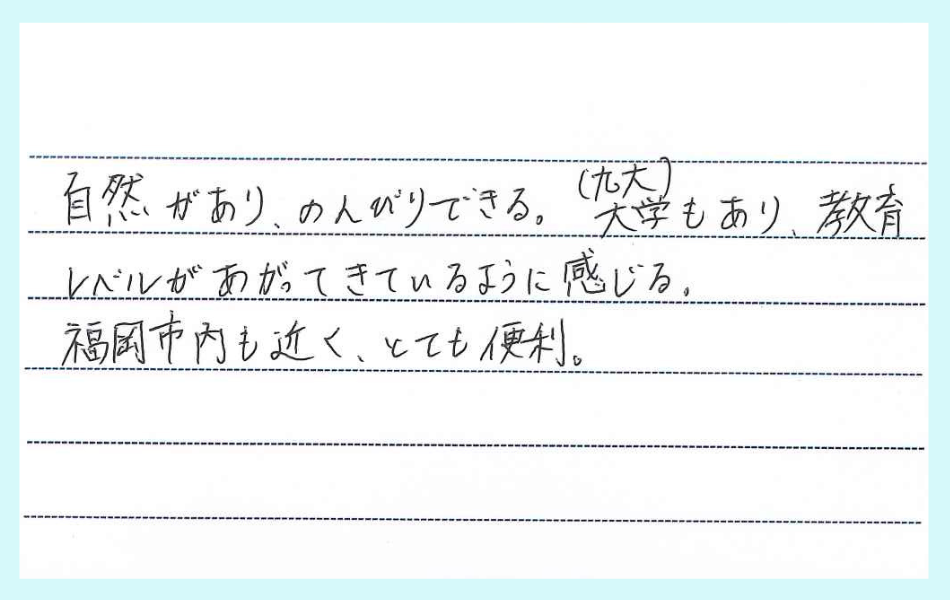 自然があり、のんびりできる。(九大)大学もあり、教育
レベルがあがってきているように感じる。
福岡市内も近く、とても便利。